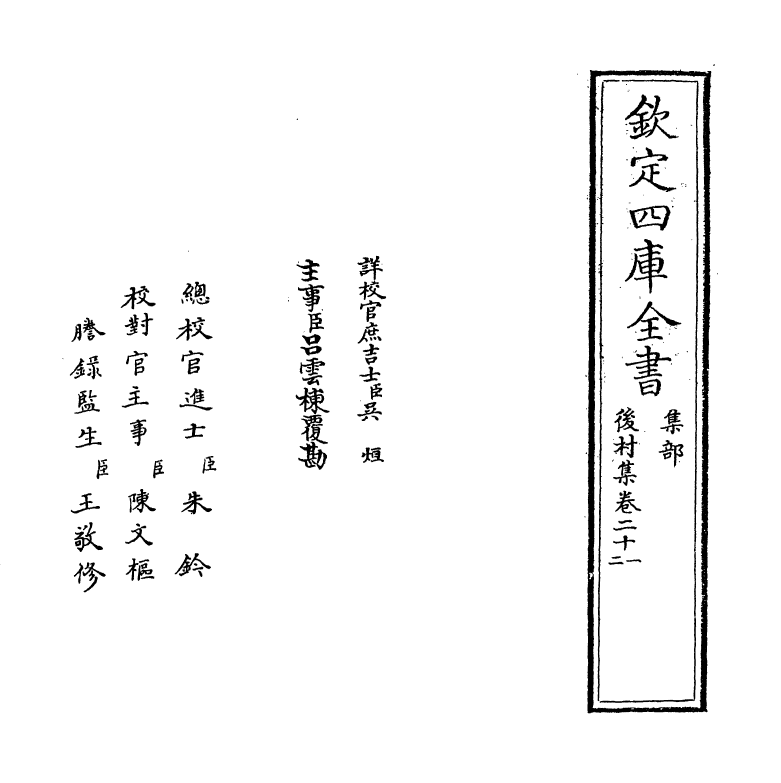 欽定四庫全書
集部
後村集卷二十一
二
詳校官庶吉士臣吳烜
主事臣呂雲棟覆勘
總校官進士臣朱鈐
校對官主事臣陳文樞
謄錄監生臣王敬修